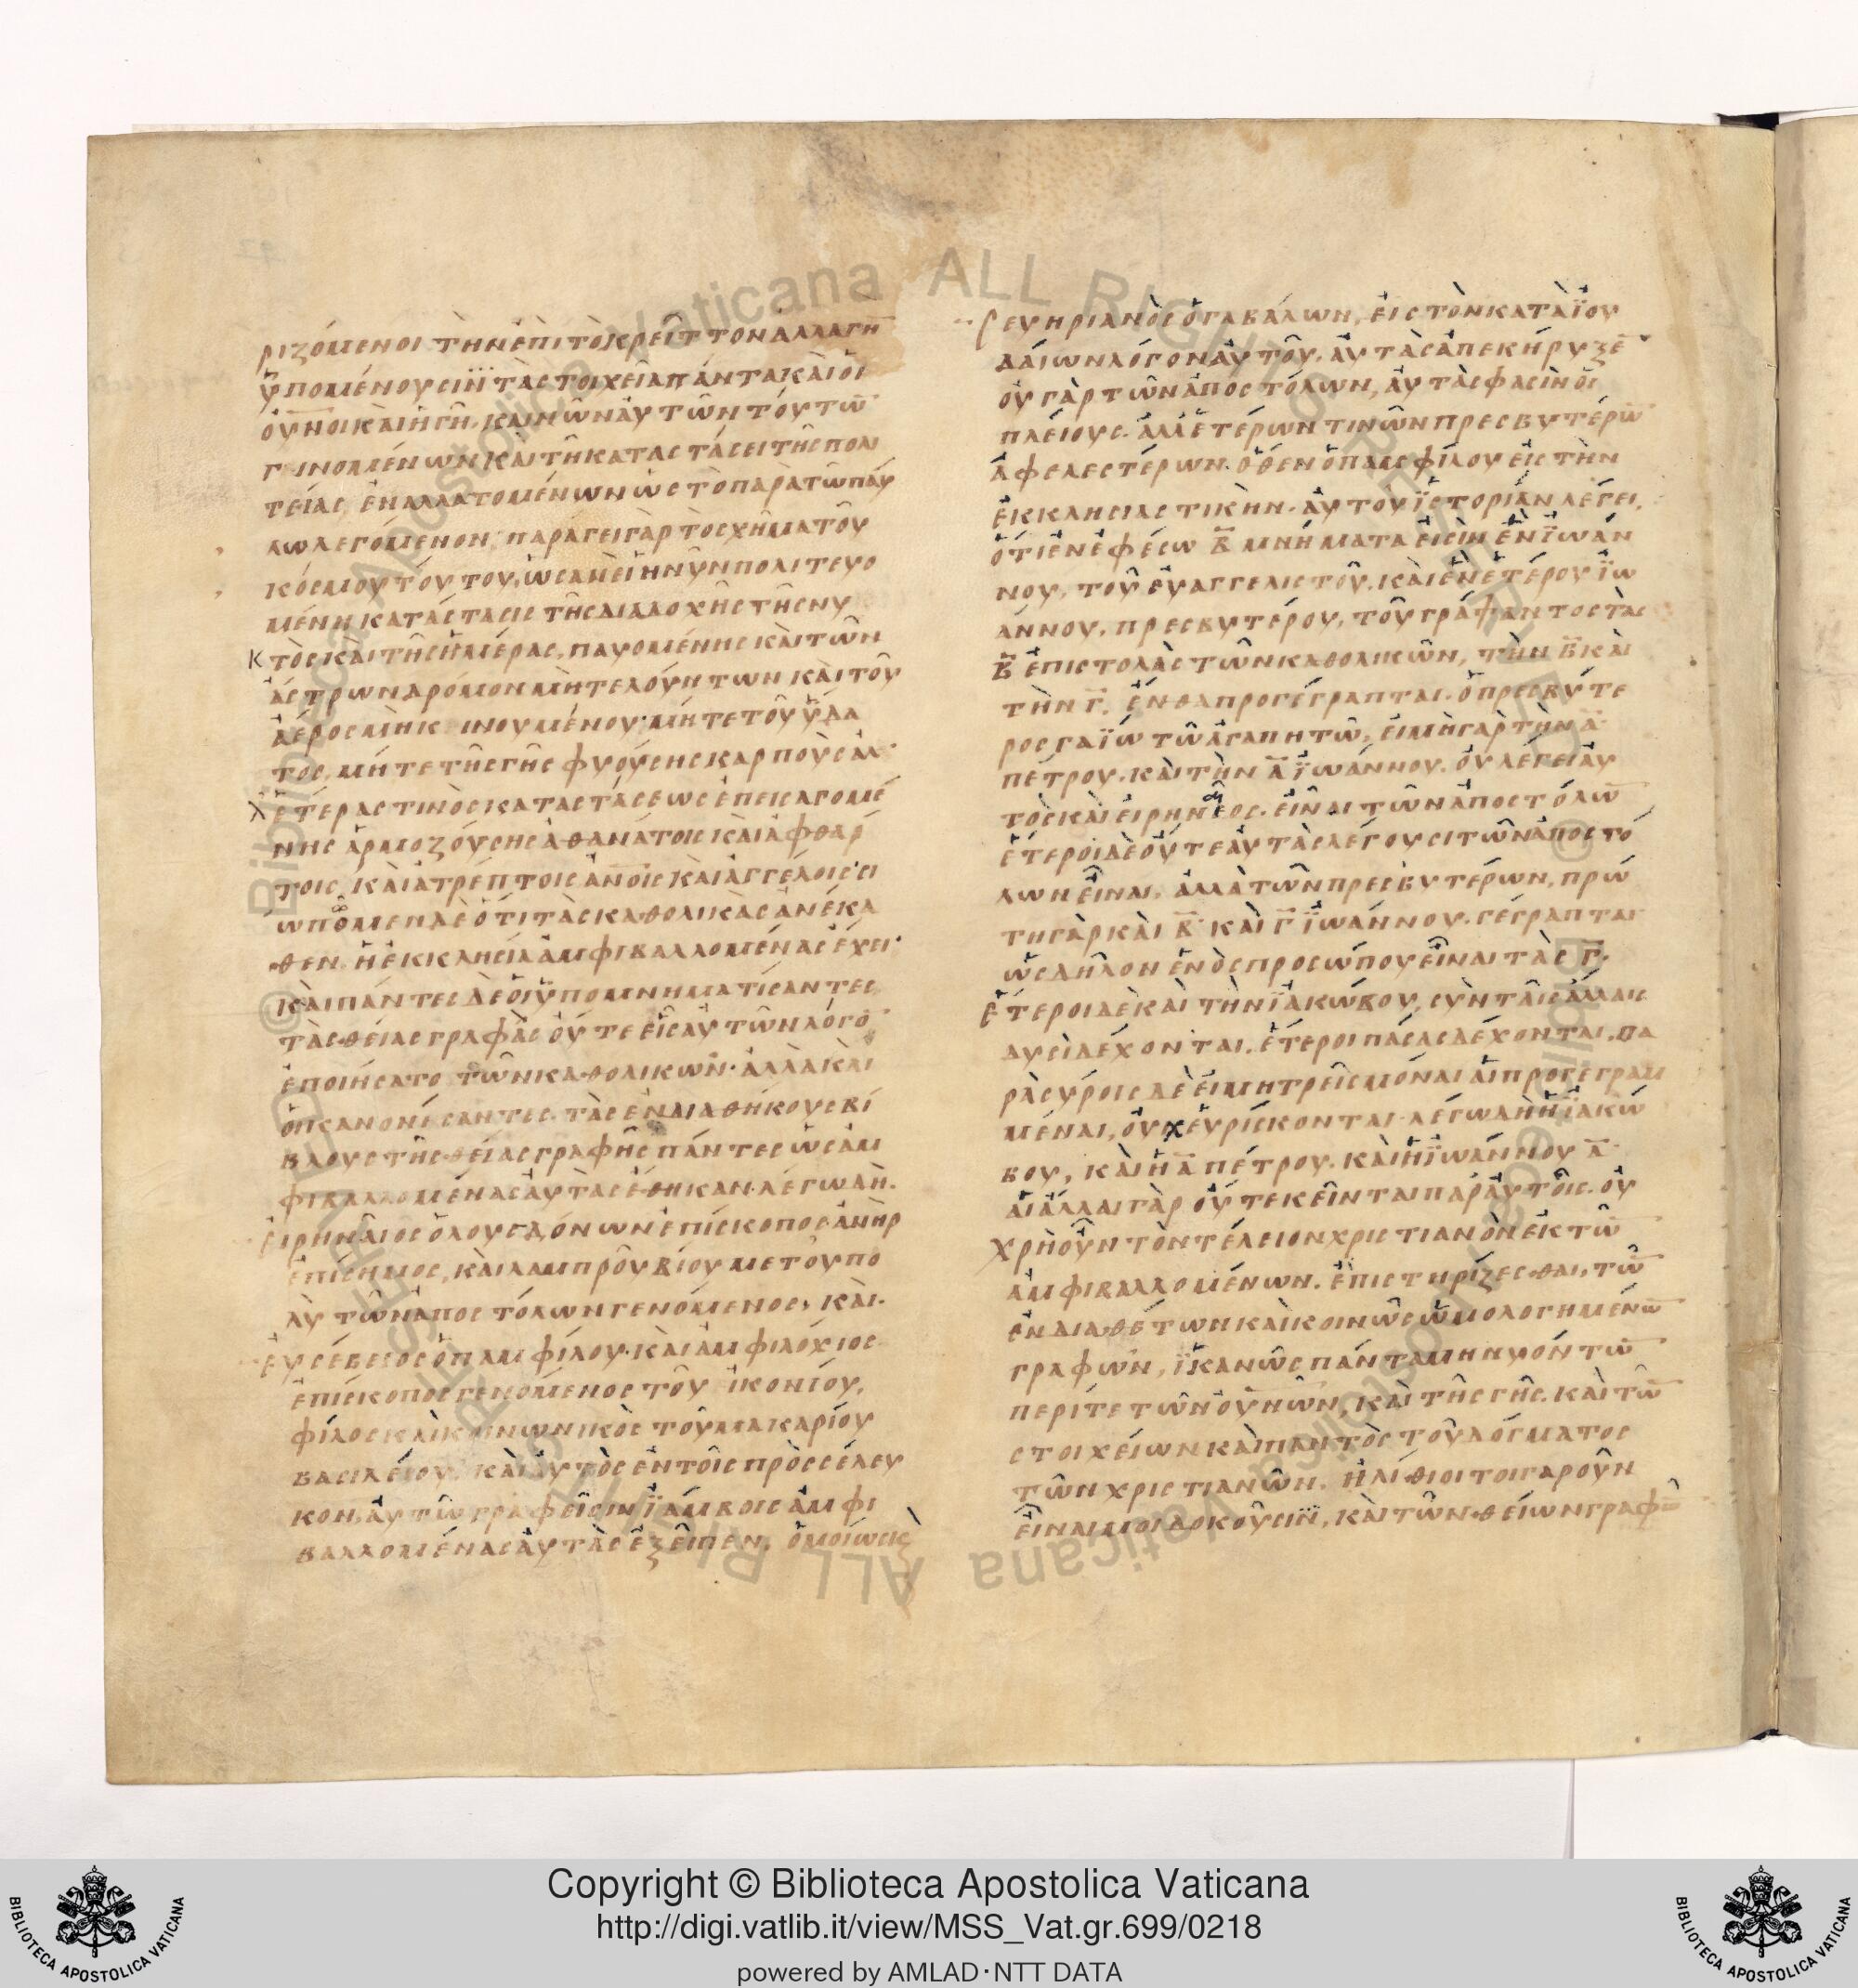 ριζόμενοι τὴν ἐπὶ τὸ κρεῖττον ἀλλαγὴ̅
ὑπομένουσιν τὰ στοιχεῖα πάντα καὶ οἱ
οὐ̅νοι καὶ ἡ γῆ. καινῶν αὐτῶν τούτω̅
γινομένων καὶ τῆ καταστάσει τῆς πολι
τείας ἐναλλατομένων ὡς τὸ παρὰ τῶ παύ
λω λεγόμενον, παράγει γὰρ τὸ σχῆμα τοῦ
κόσμου τούτου, ὡσανεὶ ἡ νῦν πολιτευο
μένη κατάστασις τῆς διαδοχῆς τῆς νυ
κτὸς καὶ τῆς ἡμέρας, παυομένης καὶ τῶν
ἄστρων δρόμον μὴ τελούντων καὶ τοῦ
ἀέρος μὴ κινουμένου· μήτε τοῦ ὕδα
τος, μήτε τῆς γῆς φυούσης καρποὺς ἀλ
λ' ἑτέρας τινὸς καταστάσεως ἐπεισαγομέ
νης ἁρμοζούσης ἀθανάτοις καὶ ἀφθάρ
τοις, καὶ ἀτρέπτοις ἀν̅οις καὶ ἀγγέλοις· σι
ωπῶμεν δὲ ὅτι τὰς καθολικὰς ἀνέκα
θεν ἡ ἐκκλησία ἀμφιβαλλομένας ἔχει·
καὶ πάντες δὲ οἱ ὑπομνηματίσαντες
τὰς θείας γραφὰς οὔτε εἷς αὐτῶν λόγο̅
ἐποιήσατο τῶν καθολικῶν· ἀλλὰ καὶ
οἱ κανονίσαντες τὰς ἐνδιαθήκους βί
βλους τῆς θείας γραφῆς πάντες ὡς ἀμ
φιβαλλομένας αὐτὰς ἔθηκαν· λέγω δὴ.
εἰρηναῖος ὁ λουγδόνων ἐπίσκοπος ἀνὴρ
ἐπίσημος, καὶ λαμπροῦ βίου μετ' οὐ πο
λὺ τῶν ἀποστόλων γενόμενος, καὶ.
εὐσέβειος ὁ παμφίλου· καὶ ἀμφιλόχιος
ἐπίσκοπος γενόμενος τοῦ ἰκονίου,
φίλος καὶ κοινωνικὸς τοῦ μακαρίου
βασιλείου. καὶ αὐτὸς ἐν τοῖς πρὸς σέλευ
κον, αὐτῶ γραφεῖσιν ἰάμβοις ἀμφι
βαλλομένας αὐτὰς ἐξεῖπεν, ὁμοίως κ̀
σευηριανὸς ὁ γαβάλων, εἰς τὸν κατὰ ἰου
δαίων λόγον αὐτοῦ. αὐτὰς ἀπεκήρυξε̅
οὐ γὰρ τῶν ἀποστόλων, αὐτὰς φασὶν οἱ
πλείους· ἀλλ' ἑτέρων τινῶν πρεσβυτέρω̅
ἀφελεστέρων. ὅθεν ὁ παμφίλου εἰς τὴν
ἐκκλησιαστικὴν αὐτοῦ ἱστορίαν λέγει,
ὅτι ἐν ἐφέσω β̅ μνήματα εἰσὶν ἓν ἰωάν
νου, τοῦ εὐαγγελιστοῦ, καὶ ἓν ἑτέρου ἰω
άννου, πρεσβυτέρου, τοῦ γράψαντος τὰς
β̅ ἐπιστολὰς τῶν καθολικῶν, τὴν β̅ καὶ
τὴν γ̅, ἔνθα προγέγραπται. ὁ πρεσβύτε
ρος γαΐω τῶ ἀγαπητῶ, εἰ μὴ γὰρ τὴν α̅
πέτρου. καὶ τὴν α̅ ἰωάννου. οὐ λέγει αὐ
τὸς καὶ εἰρηναῖος. εἶναι τῶν ἀποστόλω̅
ἕτεροι δὲ οὔτε αὐτὰς λέγουσι τῶν ἀποστό
λων εἶναι, ἀλλὰ τῶν πρεσβυτέρων, πρώ
τη γὰρ καὶ β̅ καὶ γ̅ ἰωάννου. γέγραπται
ὡς δῆλον ἑνὸς προσώπου εἶναι τὰς γ̅.
ἕτεροι δὲ καὶ τὴν ἰακώβου, σὺν ταῖς ἄλλαις
δυσὶ δέχονται. ἕτεροι πάσας δέχονται, πα
ρὰ σύροις δὲ εἰ μὴ τρεῖς μόναι αἱ προγεγραμ
μέναι, οὐχ εὑρίσκονται λέγω δὴ ἡ ἰακώ
βου, καὶ ἡ α̅ πέτρου. καὶ ἡ ἰωάννου α̅
αἱ ἄλλαι γὰρ οὔτε κεῖνται παρ' αὐτοῖς. οὐ
χρὴ οὖν τὸν τέλειον χριστιανὸν ἐκ τῶ̅
ἀμφιβαλλομένων. ἐπιστηρίζεσθαι, τῶ̅
ἐνδιαθέτων καὶ κοινῶς ὡμολογημένω̅
γραφῶν, ἱκανῶς πάντα μηνυόντω̅
περί τε τῶν οὐ̅νῶν, καὶ τῆς γῆς. καὶ τῶ̅
στοιχείων καὶ παντὸς τοῦ δόγματος
τῶν χριστιανῶν. ἠλίθιοι τοιγαροῦν
εἶναι μοι δοκοῦσιν, καὶ τῶν θείων γραφῶ̅
Copyright © Biblioteca Apostolica Vaticana
http://digi.vatlib.it/view/MSS_Vat.gr.699/0218
powered by AMLAD·NTT DATA
BIBLIOTECA APOSTOLICA VATICANA
BIBLIOTECA APOSTOLICA VATICANA
© Biblioteca Apostolica Vaticana ALL RIGHTS RESERVED
© Biblioteca Apostolica Vaticana ALL RIGHTS RESERVED